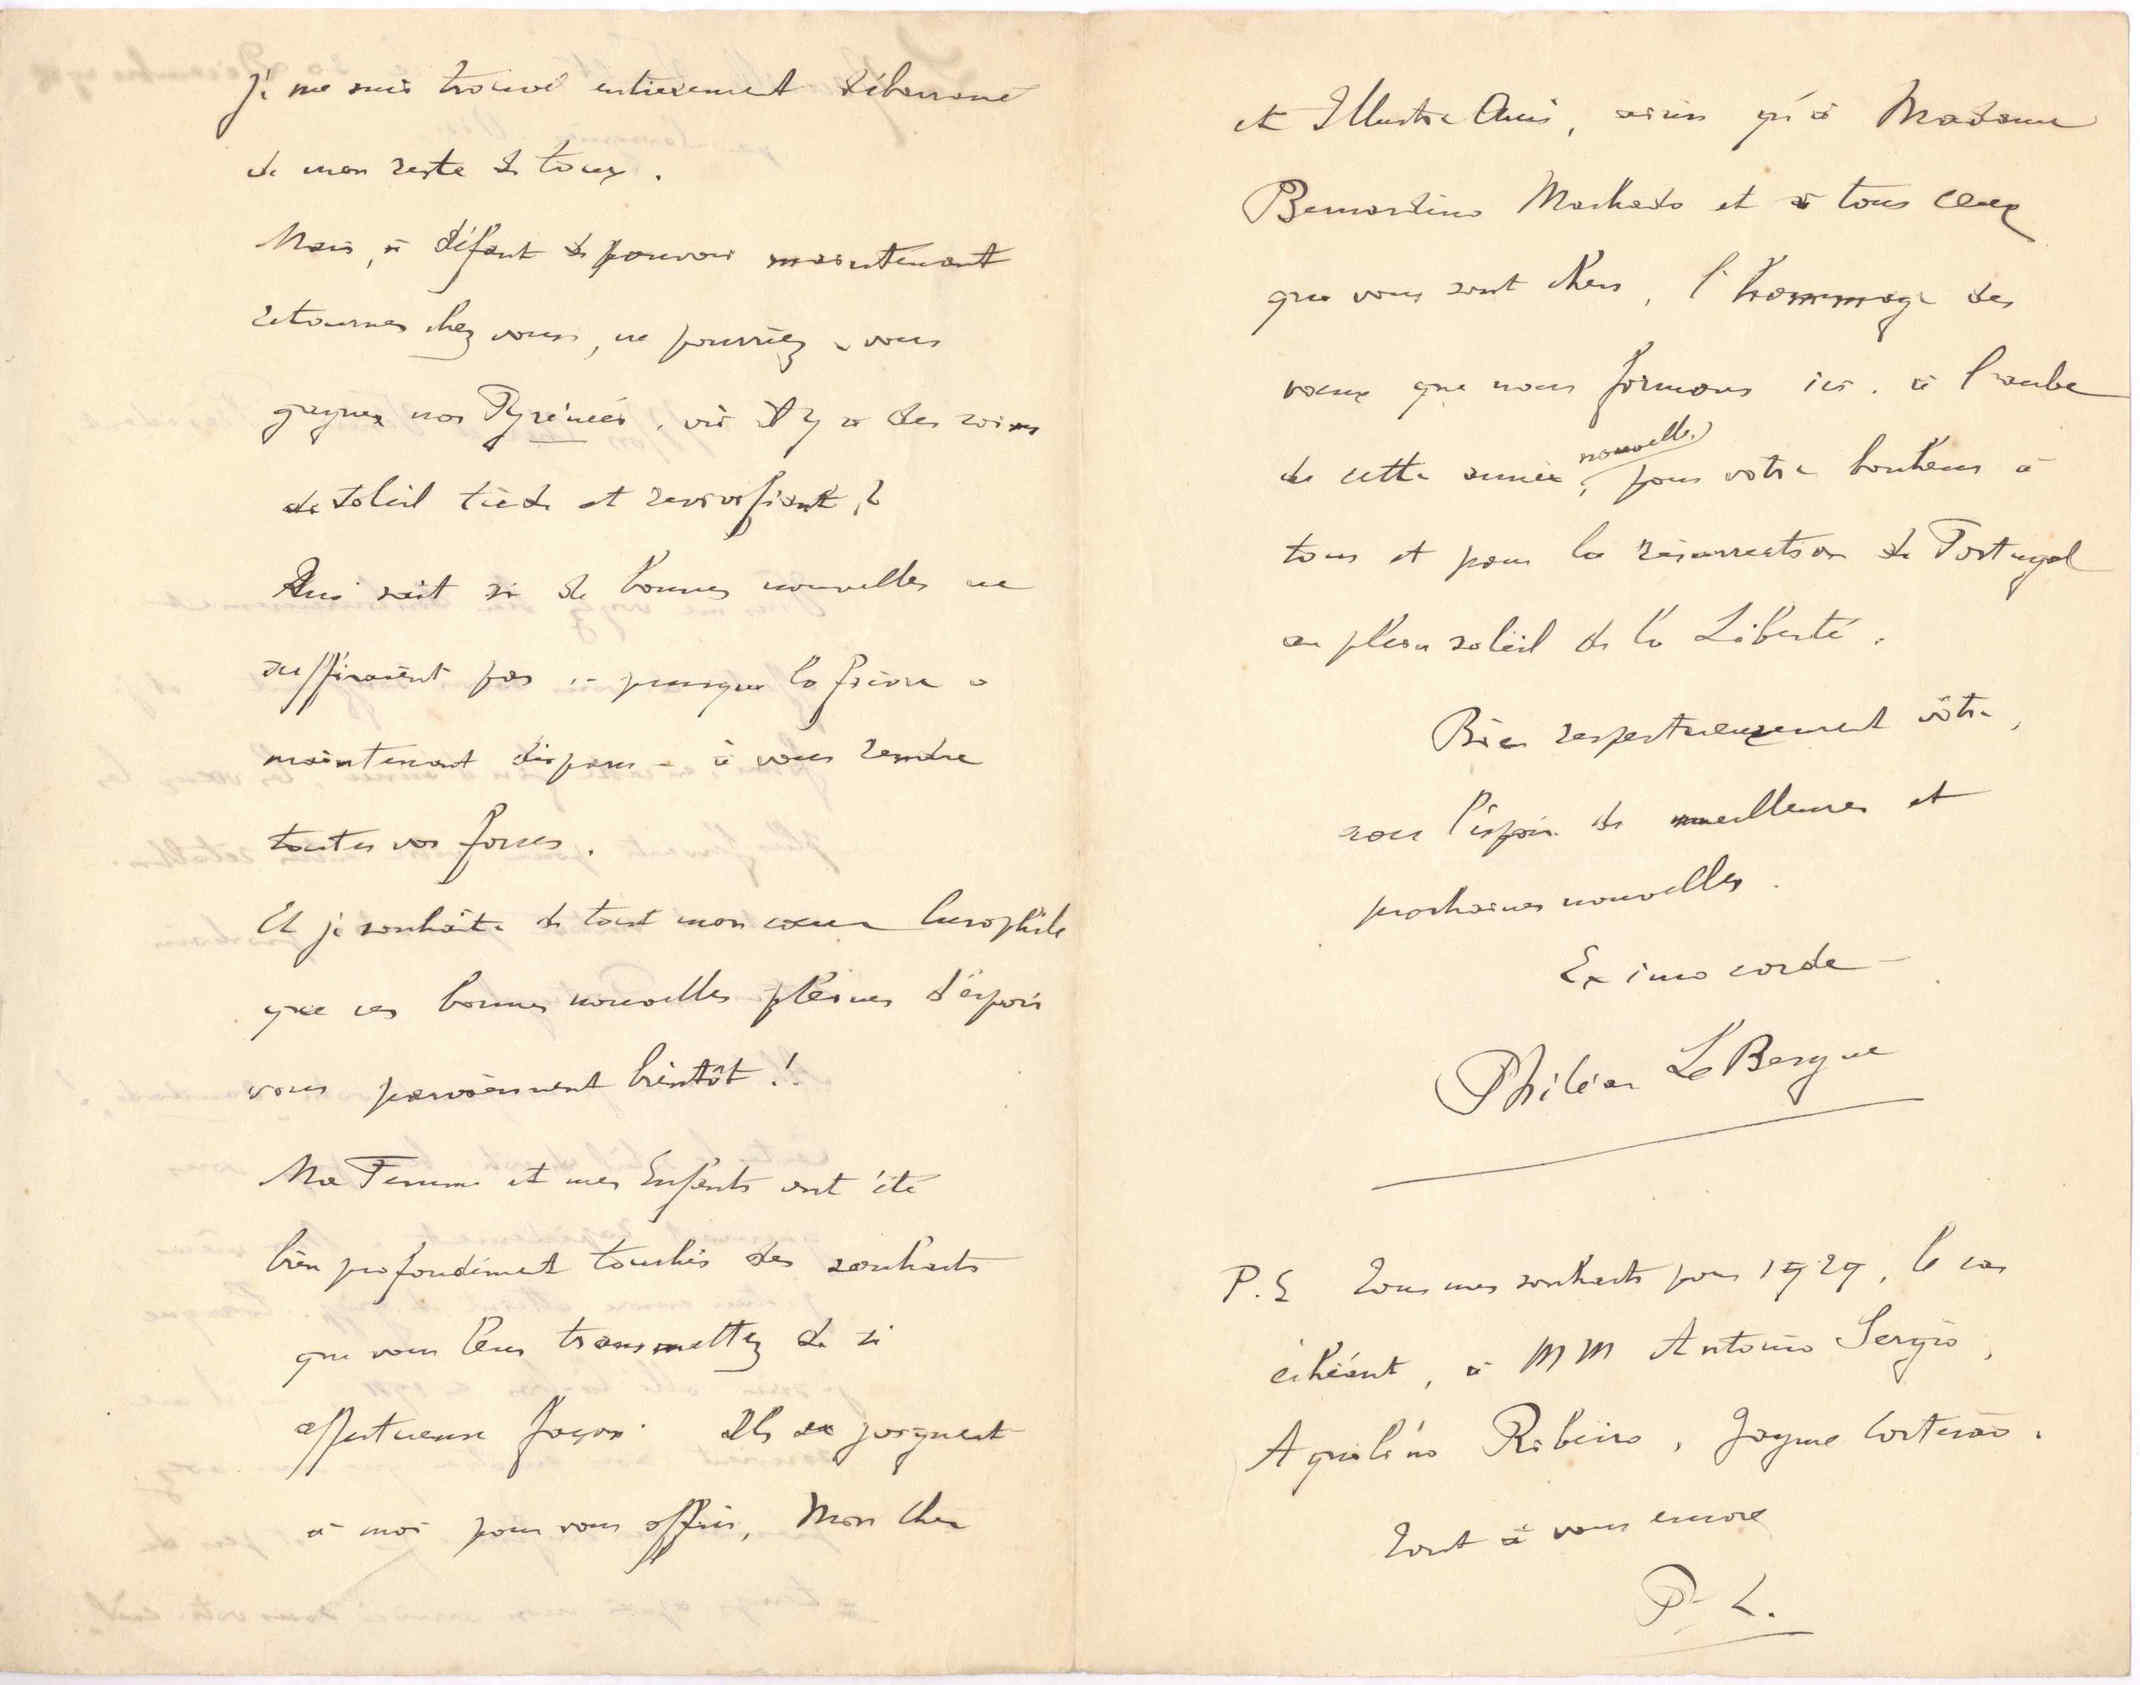 je me suis trouvé entièrement débarrassé
de mon reste de toux.
Mais, à défaut de pouvoir maintenant
retourner chez vous, ne pourriez-vous
gagner nos Pyrénées, où il y a des
de soleil tiède et revivifiant ?
Qui sait si de bonnes nouvelles ne
suffiraient pas - puisque la fièvre a
maintenant disparu - à vous rendre
toutes vos forces.
Et je souhaite de tout mon cœur lusophile
que ces bonnes nouvelles pleines d'espoir
vous parviennent bientôt !!
Ma Femme et mes Enfants ont été
bien profondément touchés des souhaits
que vous leur transmettez de si
affectueuse façon. Ils se joignent
à moi pour vous offrir, Mon cher
et Illustre Ami, ainsi qu'à Madame
Bernardino Machado et à tous ceux
que vous sont chers, l'hommage des
vœux que nous formons ici, à l'aube
de cette année nouvelle, pour votre bonheur à
tous et pour la résurrection du Portugal
au plein soleil de la Liberté.
Bien respectueusement vôtre,
sous l'espoir de meilleures et
prochaines nouvelles.
Ex imo corde
Philéas LeBesgue
P.S Tous mes souhaits pour 1929, le cas
échéant, à MM Antonio Sergio,
Aquilino Ribeiro, Jayme Cortesão.
Tout à vous encore
P. L.